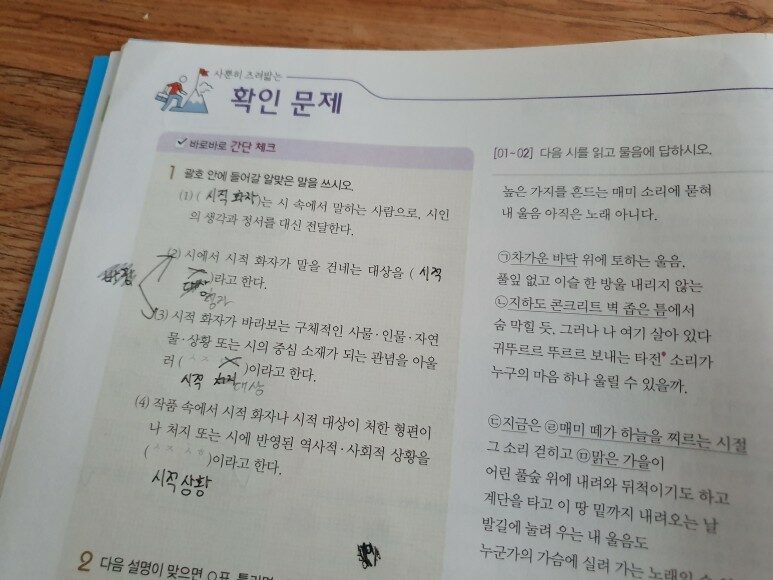 사뿐히 즈려밟는
확인 문제
바로바로 간단 체크
1 괄호 안에 들어갈 알맞은 말을 쓰시오.
(1) ( 시적 화자 )는 시 속에서 말하는 사람으로, 시인
의 생각과 정서를 대신 전달한다.
(2) 시에서 시적 화자가 말을 건네는 대상을 ( 시적
)라고 한다.
(3) 시적 화자가 바라보는 구체적인 사물·인물·자연
물·상황 또는 시의 중심 소재가 되는 관념을 아울
러 ( ㅅㅈ )이라고 한다.
시적 대상
(4) 작품 속에서 시적 화자나 시적 대상이 처한 형편이
나 처지 또는 시에 반영된 역사적·사회적 상황을
( ㅅㅈ ㅅㅎ )이라고 한다.
시적 상황
2 다음 설명이 맞으면 ○표, 틀리면
[01~02] 다음 시를 읽고 물음에 답하시오.
높은 가지를 흔드는 매미 소리에 묻혀
내 울음 아직은 노래 아니다.
㉠차가운 바닥 위에 토하는 울음,
풀잎 없고 이슬 한 방울 내리지 않는
㉡지하도 콘크리트 벽 좁은 틈에서
숨 막힐 듯, 그러나 나 여기 살아 있다
귀뚜르르 뚜르르 보내는 타전 소리가
누구의 마음 하나 울릴 수 있을까.
㉢지금은 ㉣매미 떼가 하늘을 찌르는 시절
그 소리 걷히고 ㉤맑은 가을이
어린 풀숲 위에 내려와 뒤척이기도 하고
계단을 타고 이 땅 밑까지 내려오는 날
발길에 눌려 우는 내 울음도
누군가의 가슴에 실려 가는 노래일 수